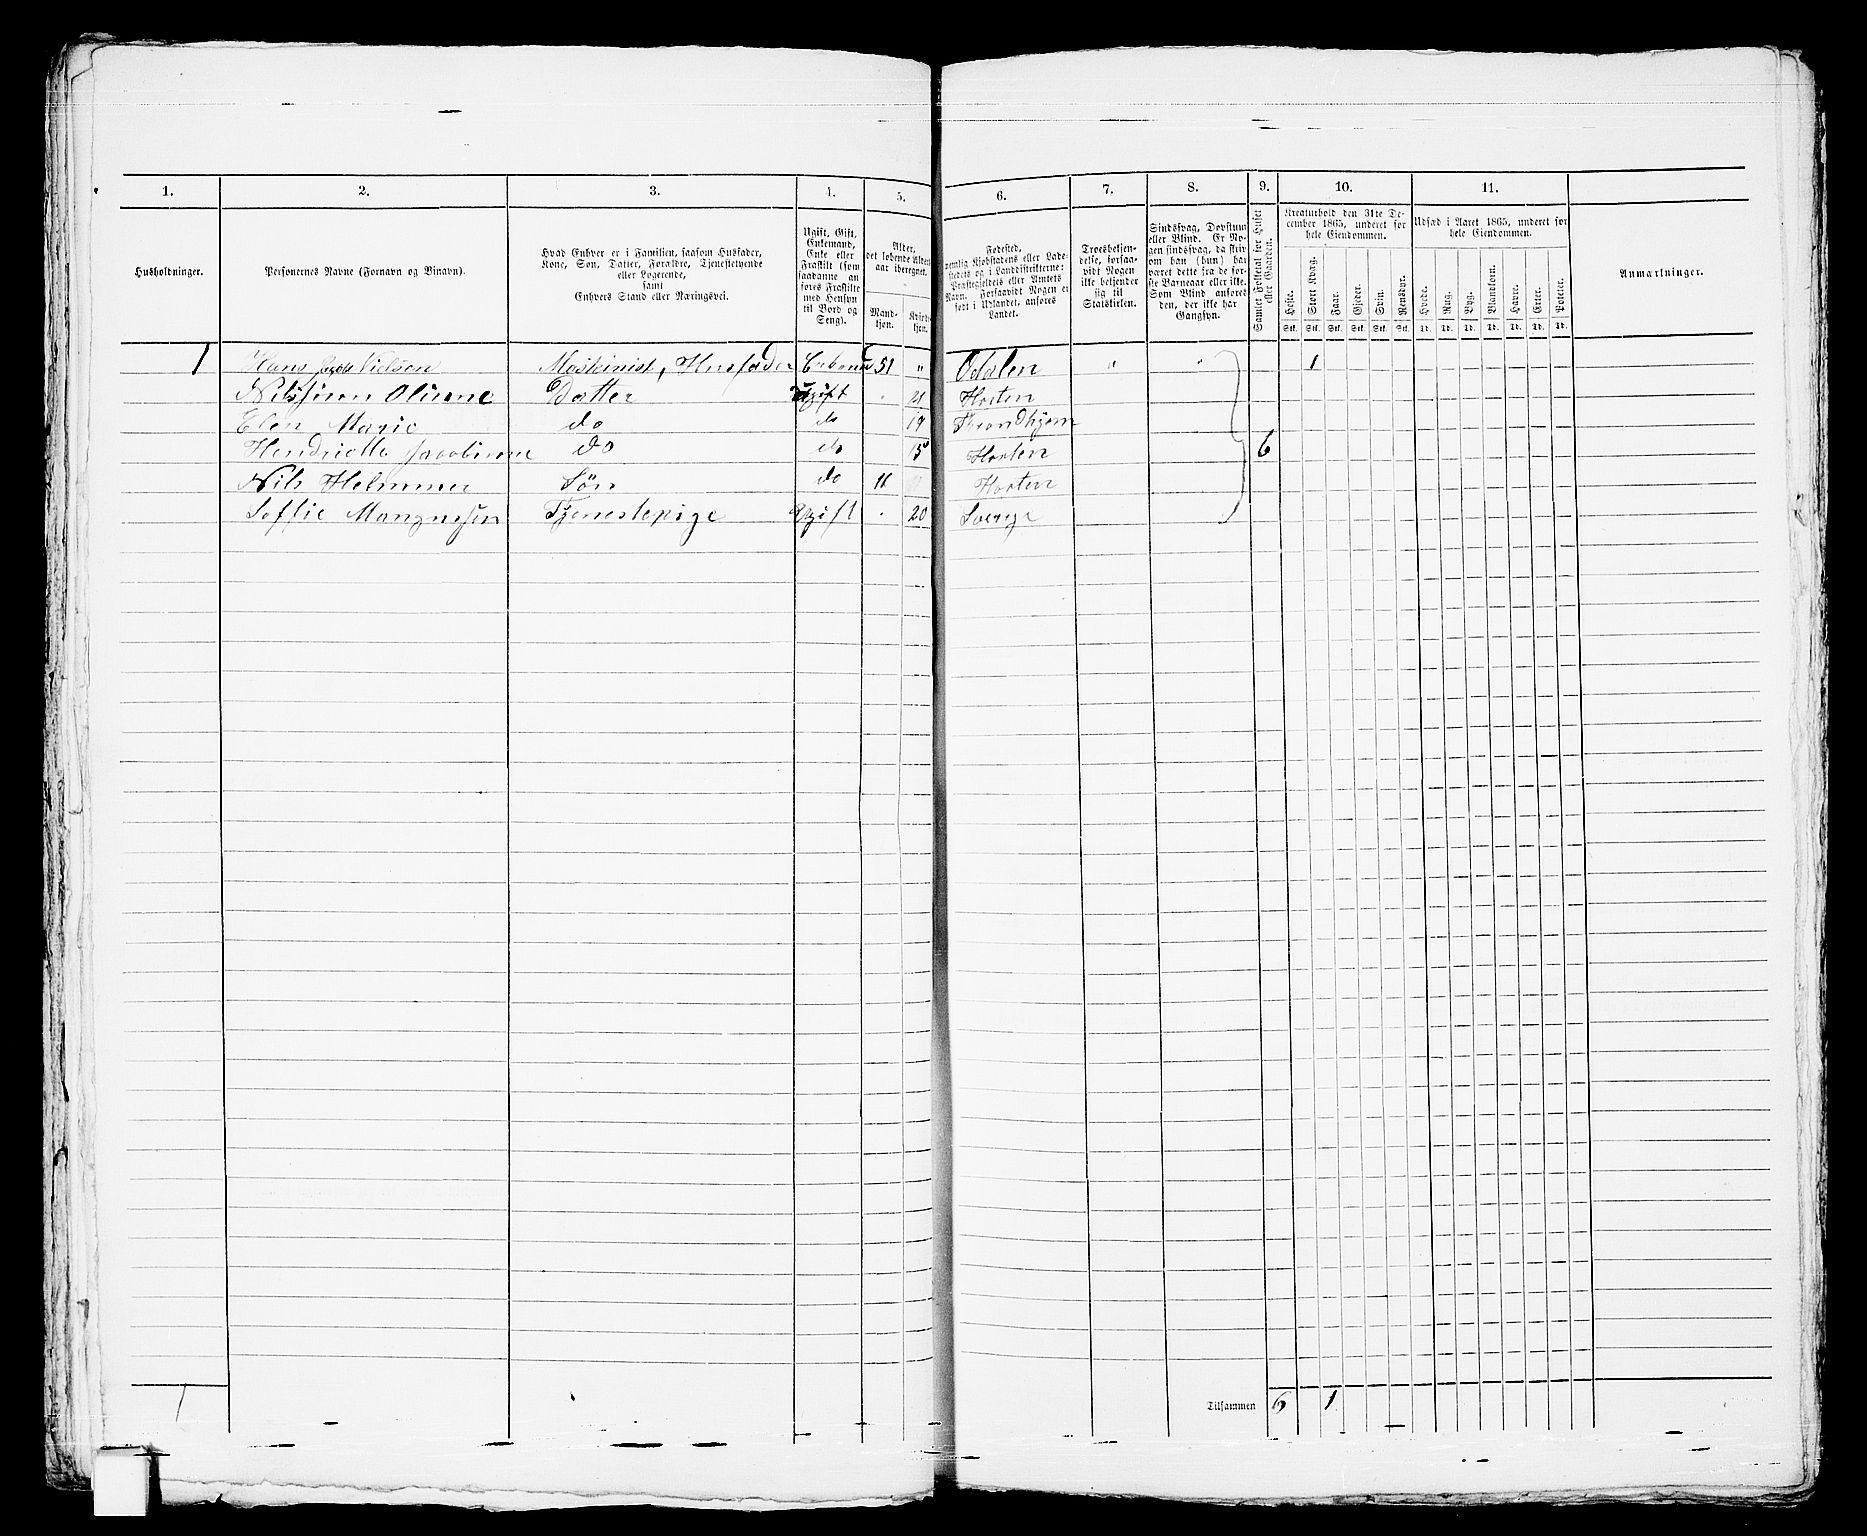 1. 2. 3. 4. 5. 6. 7. 8. 9. 10. 11.
Husholdninger.
Personernes Navne (Fornavn og Binavn).
Hvad Enhver er i Familien, saasom Husfader,
Kone, Søn, Datter, Forældre, Tjenestetyende
eller Logerende,
samt
Enhvers Stand eller Næringsvei.
Ugift, Gift,
Enkemand,
Enke eller
Fraskilt (som
saadanne an-
føres Fraskilte
med Hensyn
til Bord og
Seng).
Alder,
det løbende Alders-
aar iberegnet.
Mand-
kjøn.
Kvind-
kjøn.
Fødested,
nemlig Kjøbstadens eller Lade-
stedets og i Landdistrikterne:
Præstegjeldets eller Amtets
Navn. Forsaavidt Nogen er
født i Udlandet, anføres
Landet.
Troesbekjen-
delse, forsaa-
vidt Nogen
ikke bekjender
sig til
Statskirken.
Sindssvag, Døvstum
eller Blind. Er No-
gen sindssvag, da skriv
om han (hun) har
været dette fra de før-
ste Barneaar eller ikke.
Som Blind anføres
den, der ikke har
Gangsyn.
Samlet Folketal for Huset
eller Gaarden.
Kreaturhold den 31te De-
cember 1865, underet for
hele Eiendommen.
Heste. Stort Kvæg. Faar. Gjeder. Svin. Rensdyr.
Stk. Stk. Stk. Stk. Stk. Stk.
Udsæd i Aaret 1865, underet for
hele Eiendommen.
Hvede. Rug. Byg. Blandkorn. Havre. Erter. Poteter.
Td. Td. Td. Td. Td. Td. Td.
Anmærkninger.
1 Hans Nielsen Maskinist, Husfader 51 " Odalen " " 1
Oliane Datter Ugift 21 Horten
Elen Marie do do 19 Trondhjem
do do 15 Horten 6
Nils Søn do 11 Horten
Tjenestepige Ugift 20 Sverge
1
Tilsammen 6 1